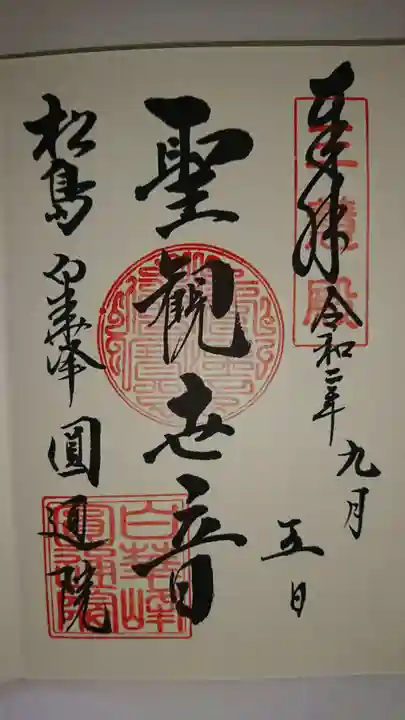 奉拝 令和二年 九月 五日
三慧殿
聖観世音
松島 白華峰 圓通院
白華峰圓通院